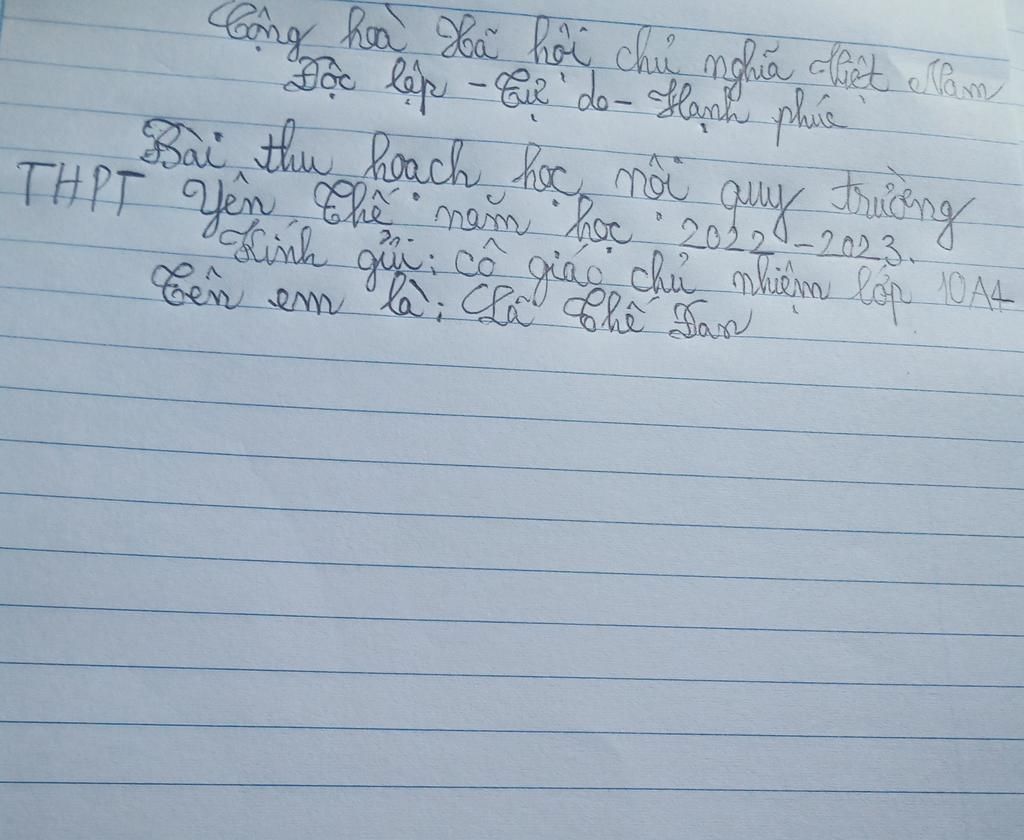 Cộng hoà Xã hội chủ nghĩa Việt Nam
Độc lập - Tự do - Hạnh phúc
Bài thu hoạch học nội quy trường
THPT Yên Thế năm học 2022-2023.
Kính gửi: cô giáo chủ nhiệm lớp 10A4
Tên em là: Lã Thế Đan